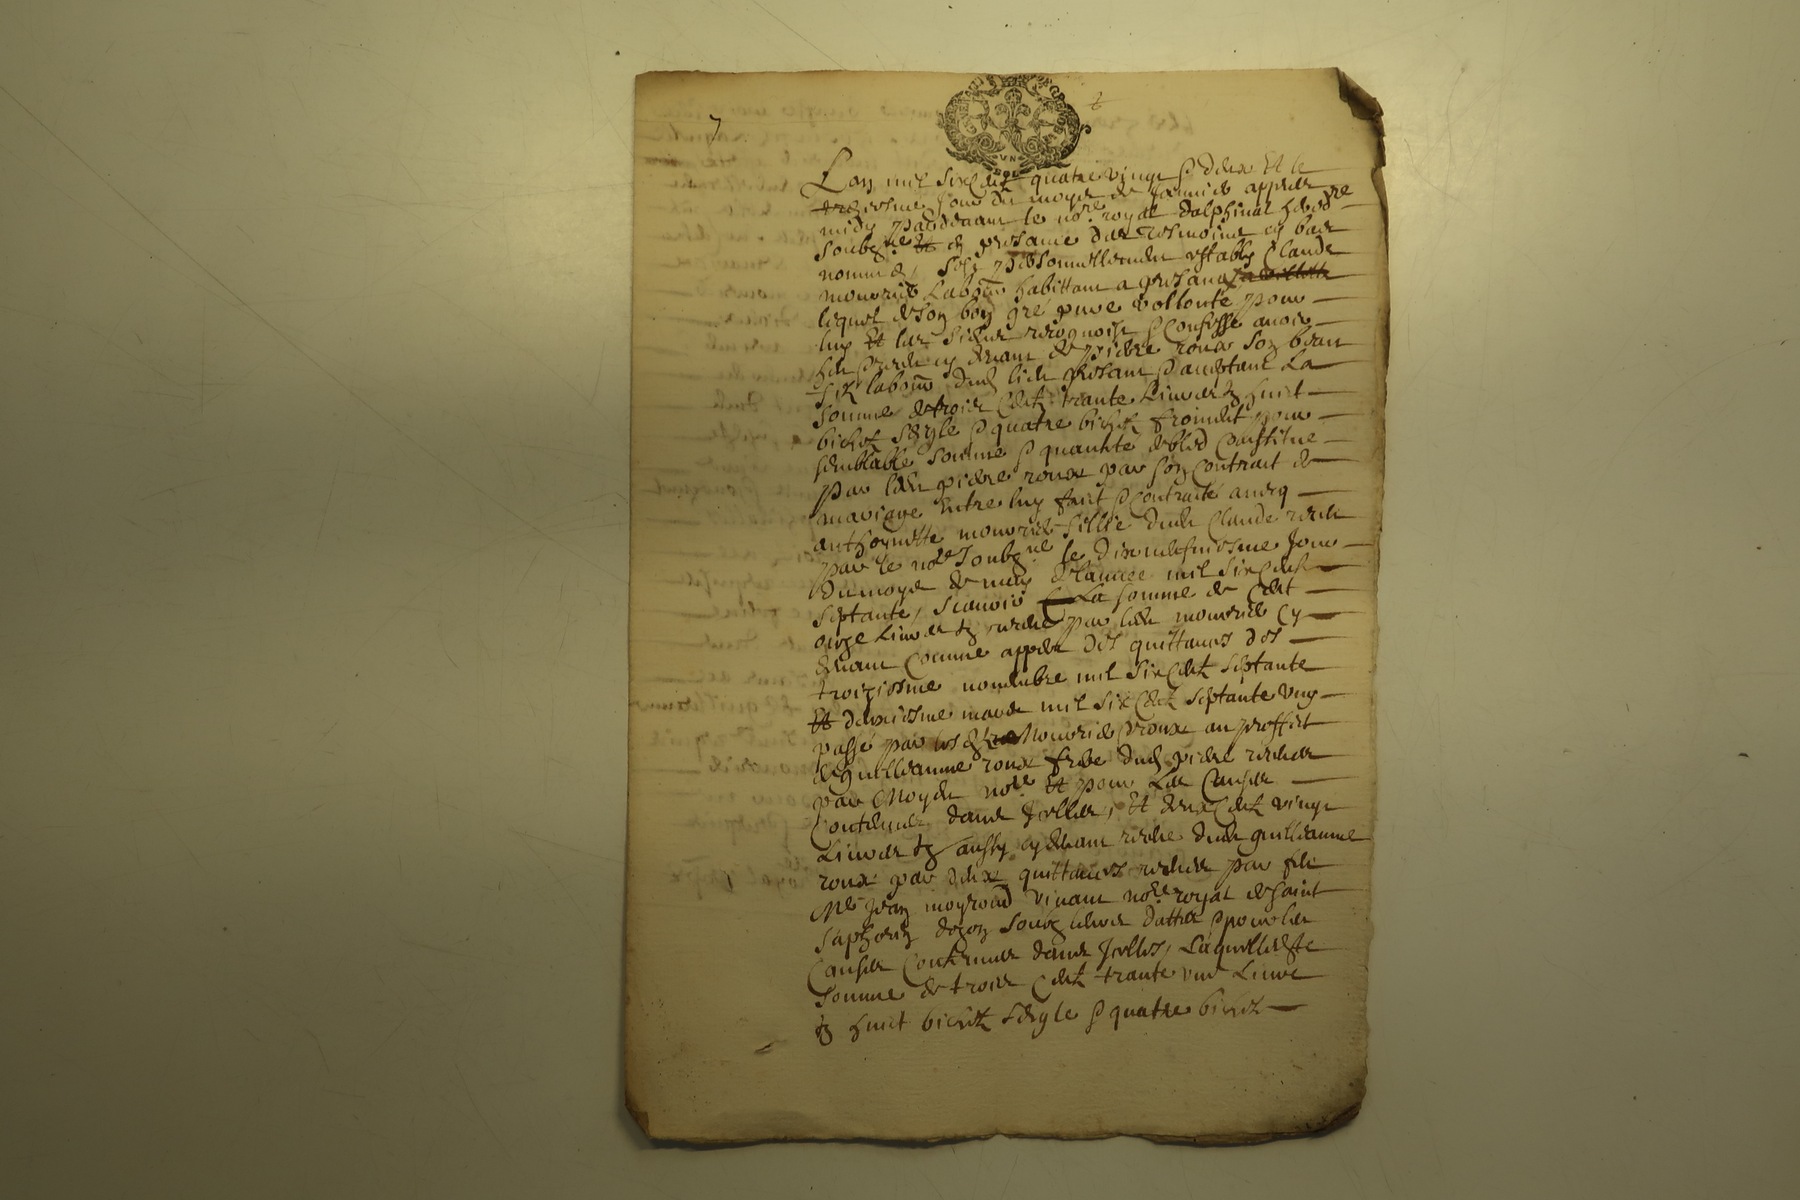 VN
SOL
Lan mil six centz quatre vingt & deux Et le
treziesme Jour du moys de Janvier appres
midy pardevant le no.re royal dalphinal hered.re
soubz.ne Et en presance des tesmoins cy bas
nommes, sest personnellement estably Claude
mouvrid Labour habittant a
lequel de son bon gré pure vollonté pour
luy Et les siens recognoist & Confesse avoir
heu & receu cy devant de pierre roux son beau
filz labour dud lieu presant & aceptant La
somme de trois centz trante Livres & huict
bichetz segle & quatre bichetz froment pour
semblable somme & quantité de bled Constitue
par led pierre roux par son Contrait de
mariage Entre luy fait & Contraité avecq
anthoynette mouvrid fillie dud Claude receu
par le no.re soubz.ne le dix neufviesme Jour
du moys de may de lannee mil six centz
septante, scavoir La somme de Cent
onze Livres tz receue par led mouvrid cy
devant Comme appert des quittances des
troiziesme novembre mil six centz septante
Et deuxiesme mars mil six centz septante ung
passé par les Mouvrid & roux au proffict
de guilleaume roux frere dud pierre receues
par Moyen no.re Et pour Les Causes
Contenues dans Jcelles, Et deux centz vingt
Livres tz aussy cy devant receue dud guilleaume
roux par deux quittances receues par feu
M.e Jean moyroud vivant no.re royal de saint
saphorin dozon soubz leurs dattes & pour les
Causes Contenues dans Jcelles, Laquelle
somme de trois centz trante une Livre
tz huict bichetz segle & quatre bichetz